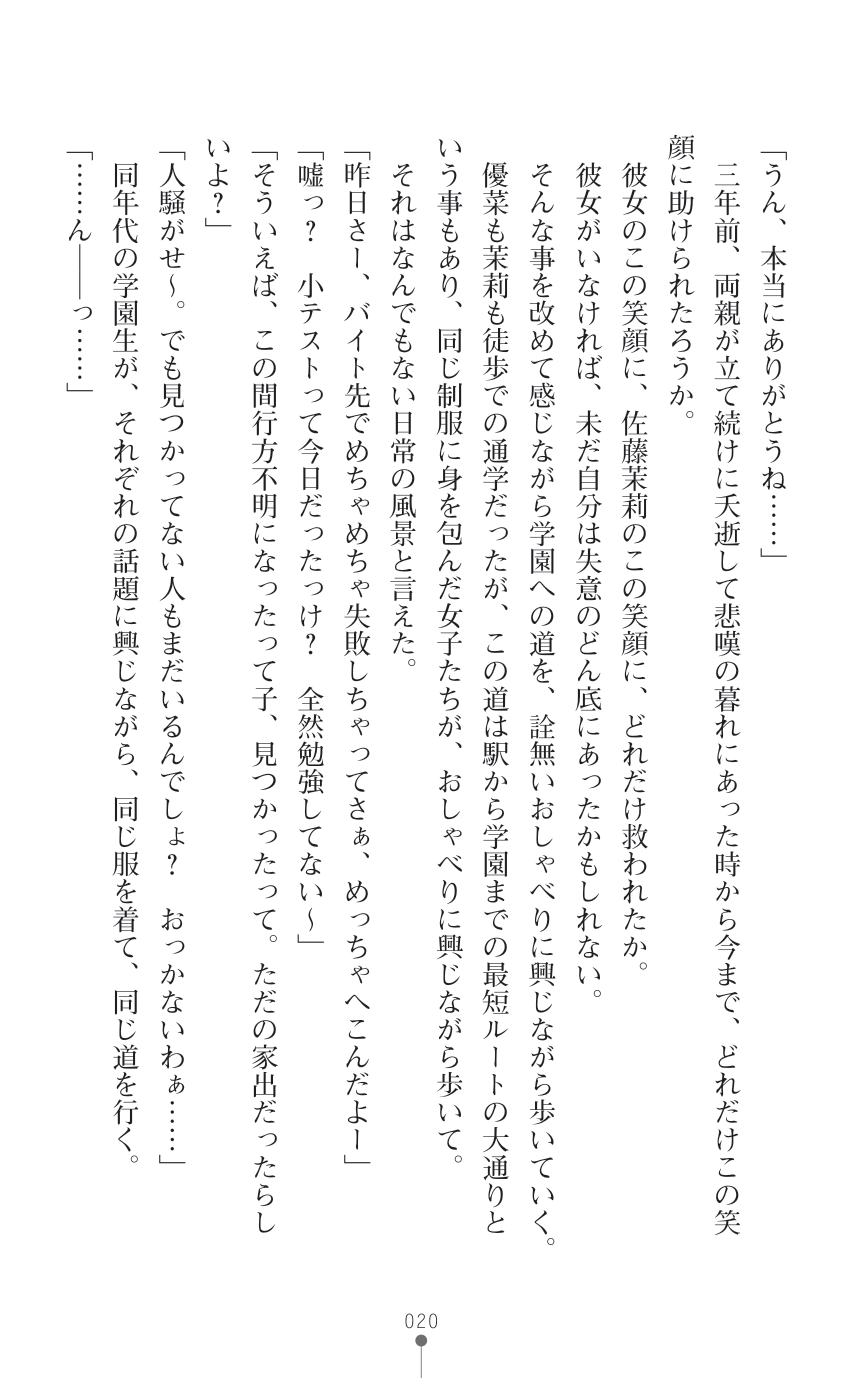 「うん、本当にありがとうね……」
　三年前、両親が立て続けに夭逝して悲嘆の暮れにあった時から今まで、どれだけこの笑
顔に助けられたろうか。
　彼女のこの笑顔に、佐藤茉莉のこの笑顔に、どれだけ救われたか。
　彼女がいなければ、未だ自分は失意のどん底にあったかもしれない。
　そんな事を改めて感じながら学園への道を、詮無いおしゃべりに興じながら歩いていく。
　優菜も茉莉も徒歩での通学だったが、この道は駅から学園までの最短ルートの大通りと
いう事もあり、同じ制服に身を包んだ女子たちが、おしゃべりに興じながら歩いて。
　それはなんでもない日常の風景と言えた。
「昨日さー、バイト先でめちゃめちゃ失敗しちゃってさぁ、めっちゃへこんだよー」
「嘘っ？　小テストって今日だったっけ？　全然勉強してない～」
「そういえば、この間行方不明になったって子、見つかったって。ただの家出だったらし
いよ？」
「人騒がせ～。でも見つかってない人もまだいるんでしょ？　おっかないわぁ……」
　同年代の学園生が、それぞれの話題に興じながら、同じ服を着て、同じ道を行く。
「……ん――っ……」
020